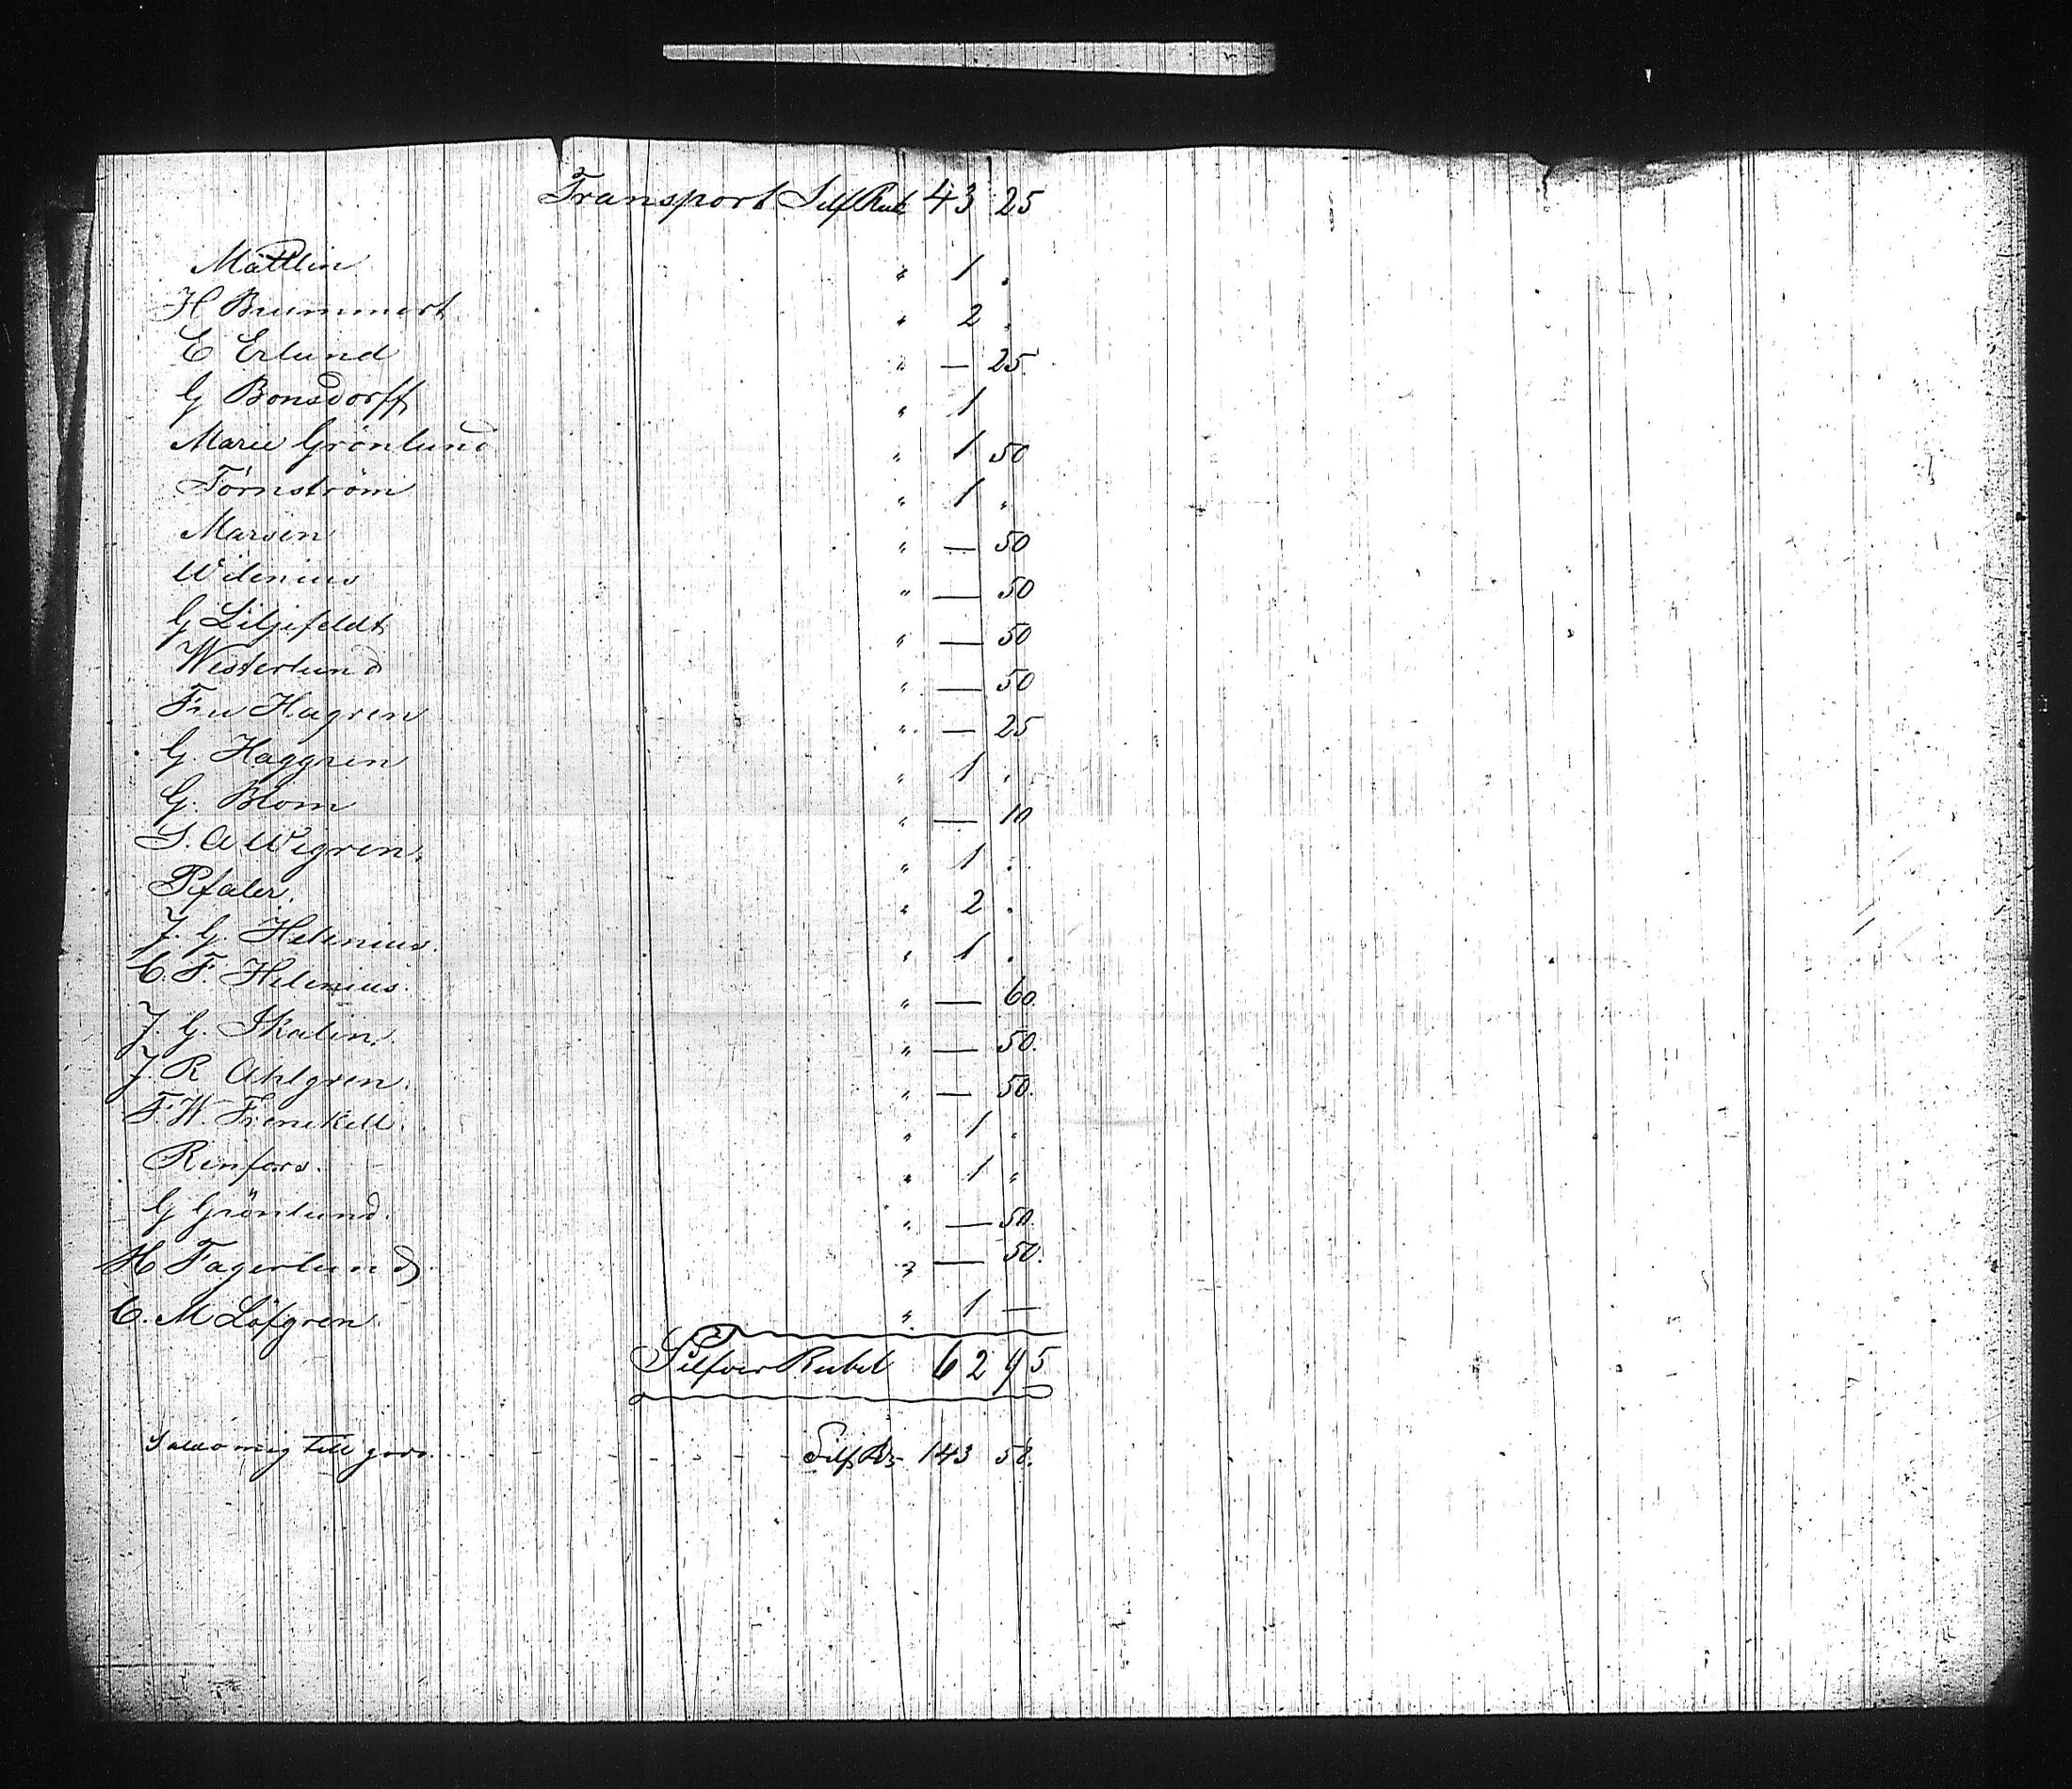 Transport Silf Rub 43 25
Mattlin " 1 "
H Brummert " 2 "
E Erlund " — 25
G Bonsdorff " 1
Marie Grönlund " 1 50
Törnström " 1 "
Marsén " — 50
Widenius " — 50
G Liljefeldt " — 50
Westerlund " — 50
Fru Hagren " — 25
G. Haggren " 1 "
G. Blom " — 10
S. A Wigren. " 1 "
Pfaler. " 2 "
J. G. Helenius. " 1 "
C. F. Helenius. " — 60.
J. G. Skalin. " — 50.
J. R Ahlgren. " — 50.
F. W. Frenckell. " 1 "
Renfors. " 1 "
G Grönlund. " — 50.
H Fagerlund " — 50.
C. M Löfgren " 1 —
Silfver Rubel 62 95
Saldo mig till godo. Silf Rb 143 58.